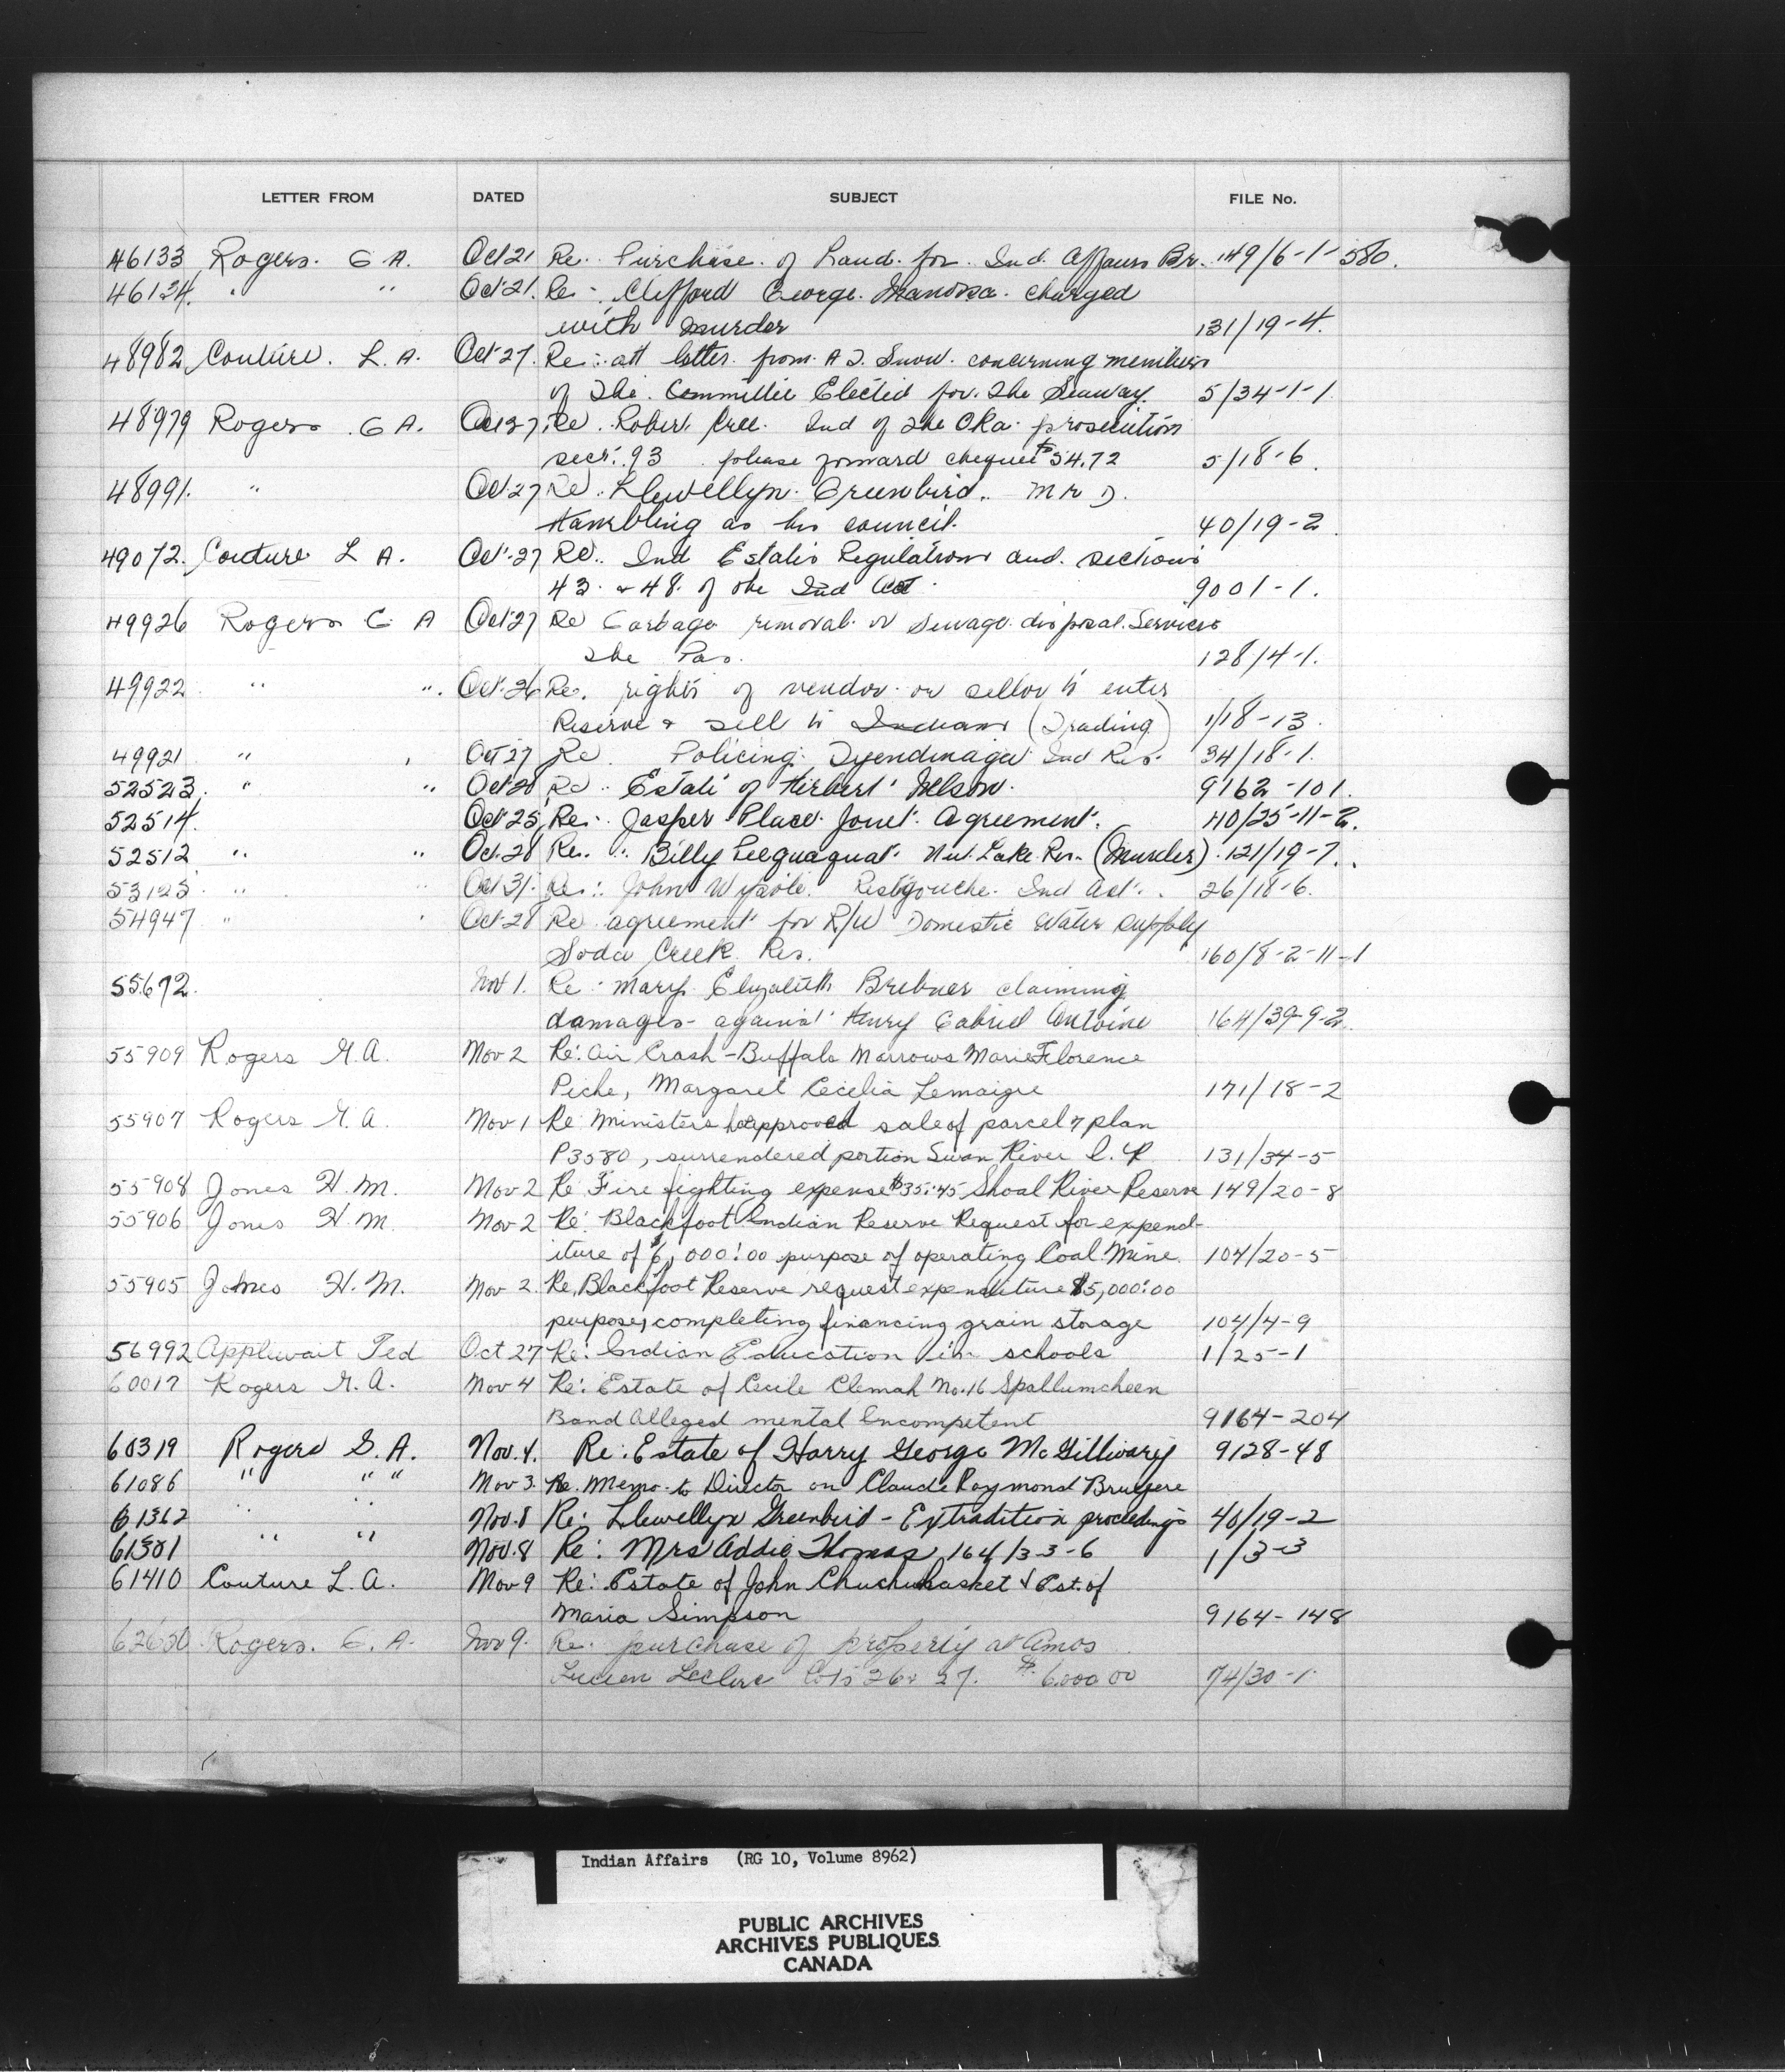 LETTER FROM DATED SUBJECT FILE No.
46133 Rogers. G A. Oct 21 Re. Purchase. of Land. for. Ind. Affairs Br. 149/6-1-580.
46134. " " Oct 21. Re - Clifford George. charged
with murder 131/19-4.
48982 Couture. L. A. Oct 27. Re: att letter. from. A. Snow. concerning members
of The. Committee Elected for. The Seaway. 5/34-1-1
48979 Rogers G A. Oct 27 Re. Robert Cree. Ind of The Oka. prosecution
sect. 93 please forward cheque $54.72 5/18-6
48991. " Oct 27 Re. Llewellyn Greenbird. Mr D.
Hambling as his council. 40/19-2
49072. Couture L A. Oct 27 Re. Ind Estates Regulations and. sections
43. & 48. of the Ind Act 9001-1.
49926 Rogers G A Oct 27 Re Garbage removal or Sewage disposal. Services
The Pas. 128/4-1.
49922 " ". Oct 26 Re. rights of vendor or sellor to enter
Reserve & sell to Indians (Trading) 1/18-13.
49921 " Oct 27 Re. Policing Tyendinaga Ind Res. 34/18-1.
52523. " " Oct 28 Re. Estate of Herbert Nelson. 9162-101.
52514. Oct 25, Re. Jasper Place. Joint. Agreement. 40/25-11-2.
52512 " " Oct. 28 Re. Billy Nut Lake Res. (Murder). 121/19-7.
53125 " " Oct 31. Re: John Wysote. Restigouche. Ind Act. 26/18-6.
54947 " Oct 28 Re agreement for R/W Domestic Water Supply
Soda Creek Res. 160/8-2-11-1
55672. Nov 1. Re. Mary Elizabeth Brebner claiming
damages against Henry Gabriel Antoine 164/39-9-2.
55909 Rogers G. A. Nov 2 Re: Air Crash - Buffalo Narrows Marie Florence
Piche, Margaret Cecilia Lemaigre 171/18-2
55907 Rogers G. A. Nov 1 Re Ministers approved sale of parcel 7 plan
P3580, surrendered portion Swan River I. R 131/34-5
55908 Jones H. M. Nov 2 Re Fire fighting expense $35.45 Shoal River Reserve 149/20-8
55906 Jones H. M. Nov 2 Re: Blackfoot Indian Reserve Request for expend-
iture of $6,000.00 purpose of operating Coal Mine 104/20-5
55905 Jones H. M. Nov 2. Re. Blackfoot Reserve request expenditure $5,000.00
purposes, completing financing grain storage 104/4-9
56992 Applewait Ted Oct 27 Re: Indian Education in schools 1/25-1
60017 Rogers G. A. Nov 4 Re: Estate of Cecile Clemah No. 16 Spallumcheen
Band Alleged mental Incompetent 9164-204
60319 Rogers G. A. Nov. 4. Re: Estate of Harry George McGillivary 9128-48
61086 " " " Nov 3. Re. Memo. to Director on Claude Raymond Bruyere
61362 " " Nov. 8 Re: Llewellyn Greenbird - Extradition proceedings 40/19-2
61301 " " Nov. 8 Re: Mrs Addie Thomas, 164/33-6 1/3-3
61410 Couture L. A. Nov 9 Re: Estate of John Chuchuhasket & Est. of
Maria Simpson 9164-148
62630 Rogers. G. A. Nov 9. Re. purchase of property at Amos
Lucien Leclerc Lots 26 & 27. $6,000.00 74/30-1
Indian Affairs (RG 10, Volume 8962)
PUBLIC ARCHIVES
ARCHIVES PUBLIQUES
CANADA